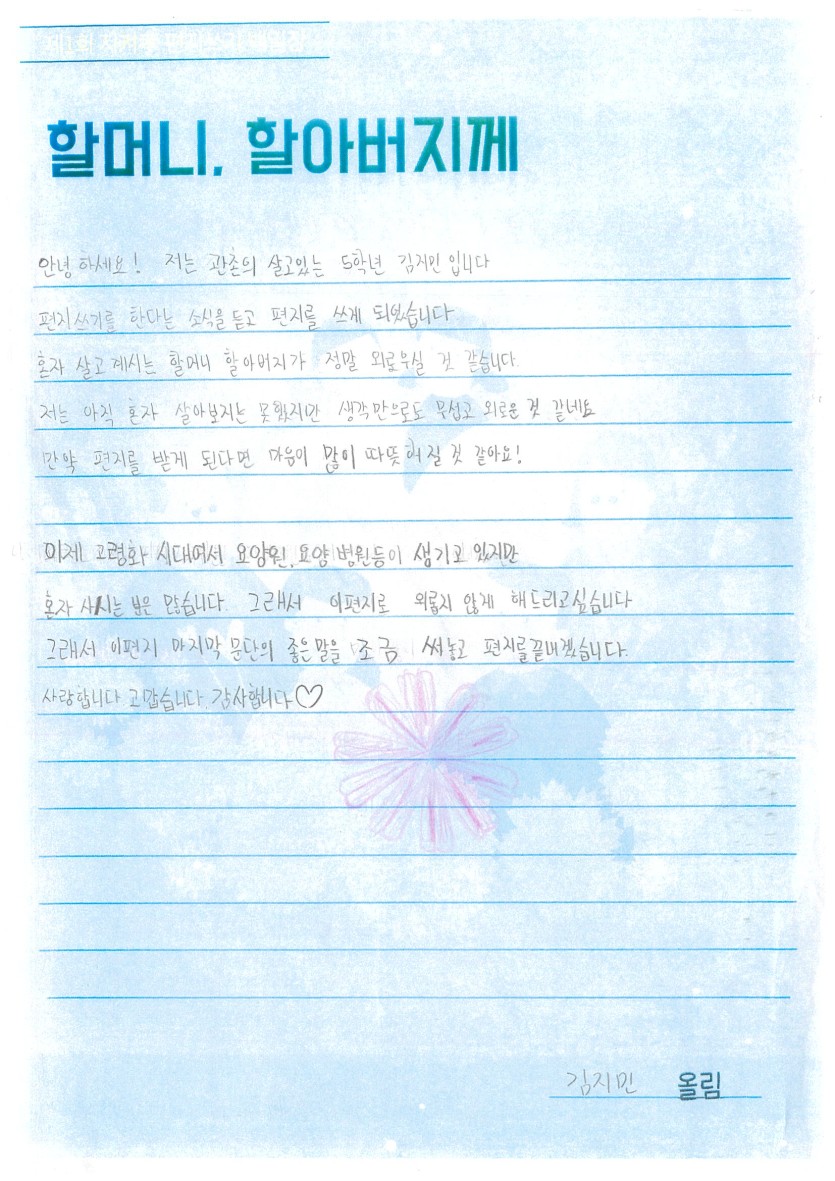 할머니, 할아버지께
안녕하세요! 저는 관촌의 살고있는 5학년 김지민입니다
편지쓰기를 한다는 소식을 듣고 편지를 쓰게 되었습니다
혼자 살고계시는 할머니 할아버지가 정말 외로우실 것 같습니다.
저는 아직 혼자 살아보지는 못했지만 생각만으로도 무섭고 외로운 것 같네요
만약 편지를 받게 된다면 마음이 많이 따뜻해질 것 같아요!
이제 고령화 시대여서 요양원, 요양병원등이 생기고 있지만
혼자 사시는 분은 많습니다. 그래서 이편지로 외롭지 않게 해드리고싶습니다
그래서 이편지 마지막 문단의 좋은말을 조금 써놓고 편지를끝내겠습니다.
사랑합니다 고맙습니다. 감사합니다♡
김지민 올림